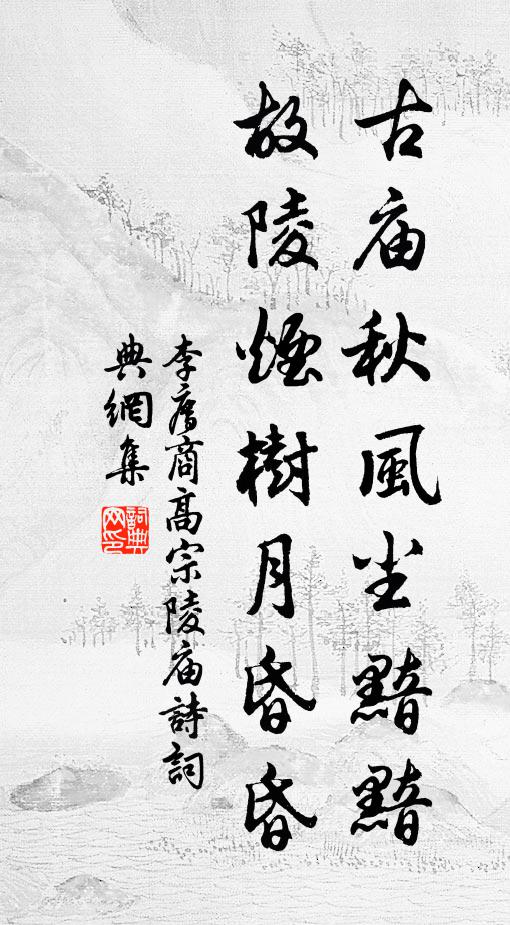 古庙秋風尘黯黯
故陵煙樹月昏昏
李膺商高宗陵庙詩詞
典網集
詞典网印